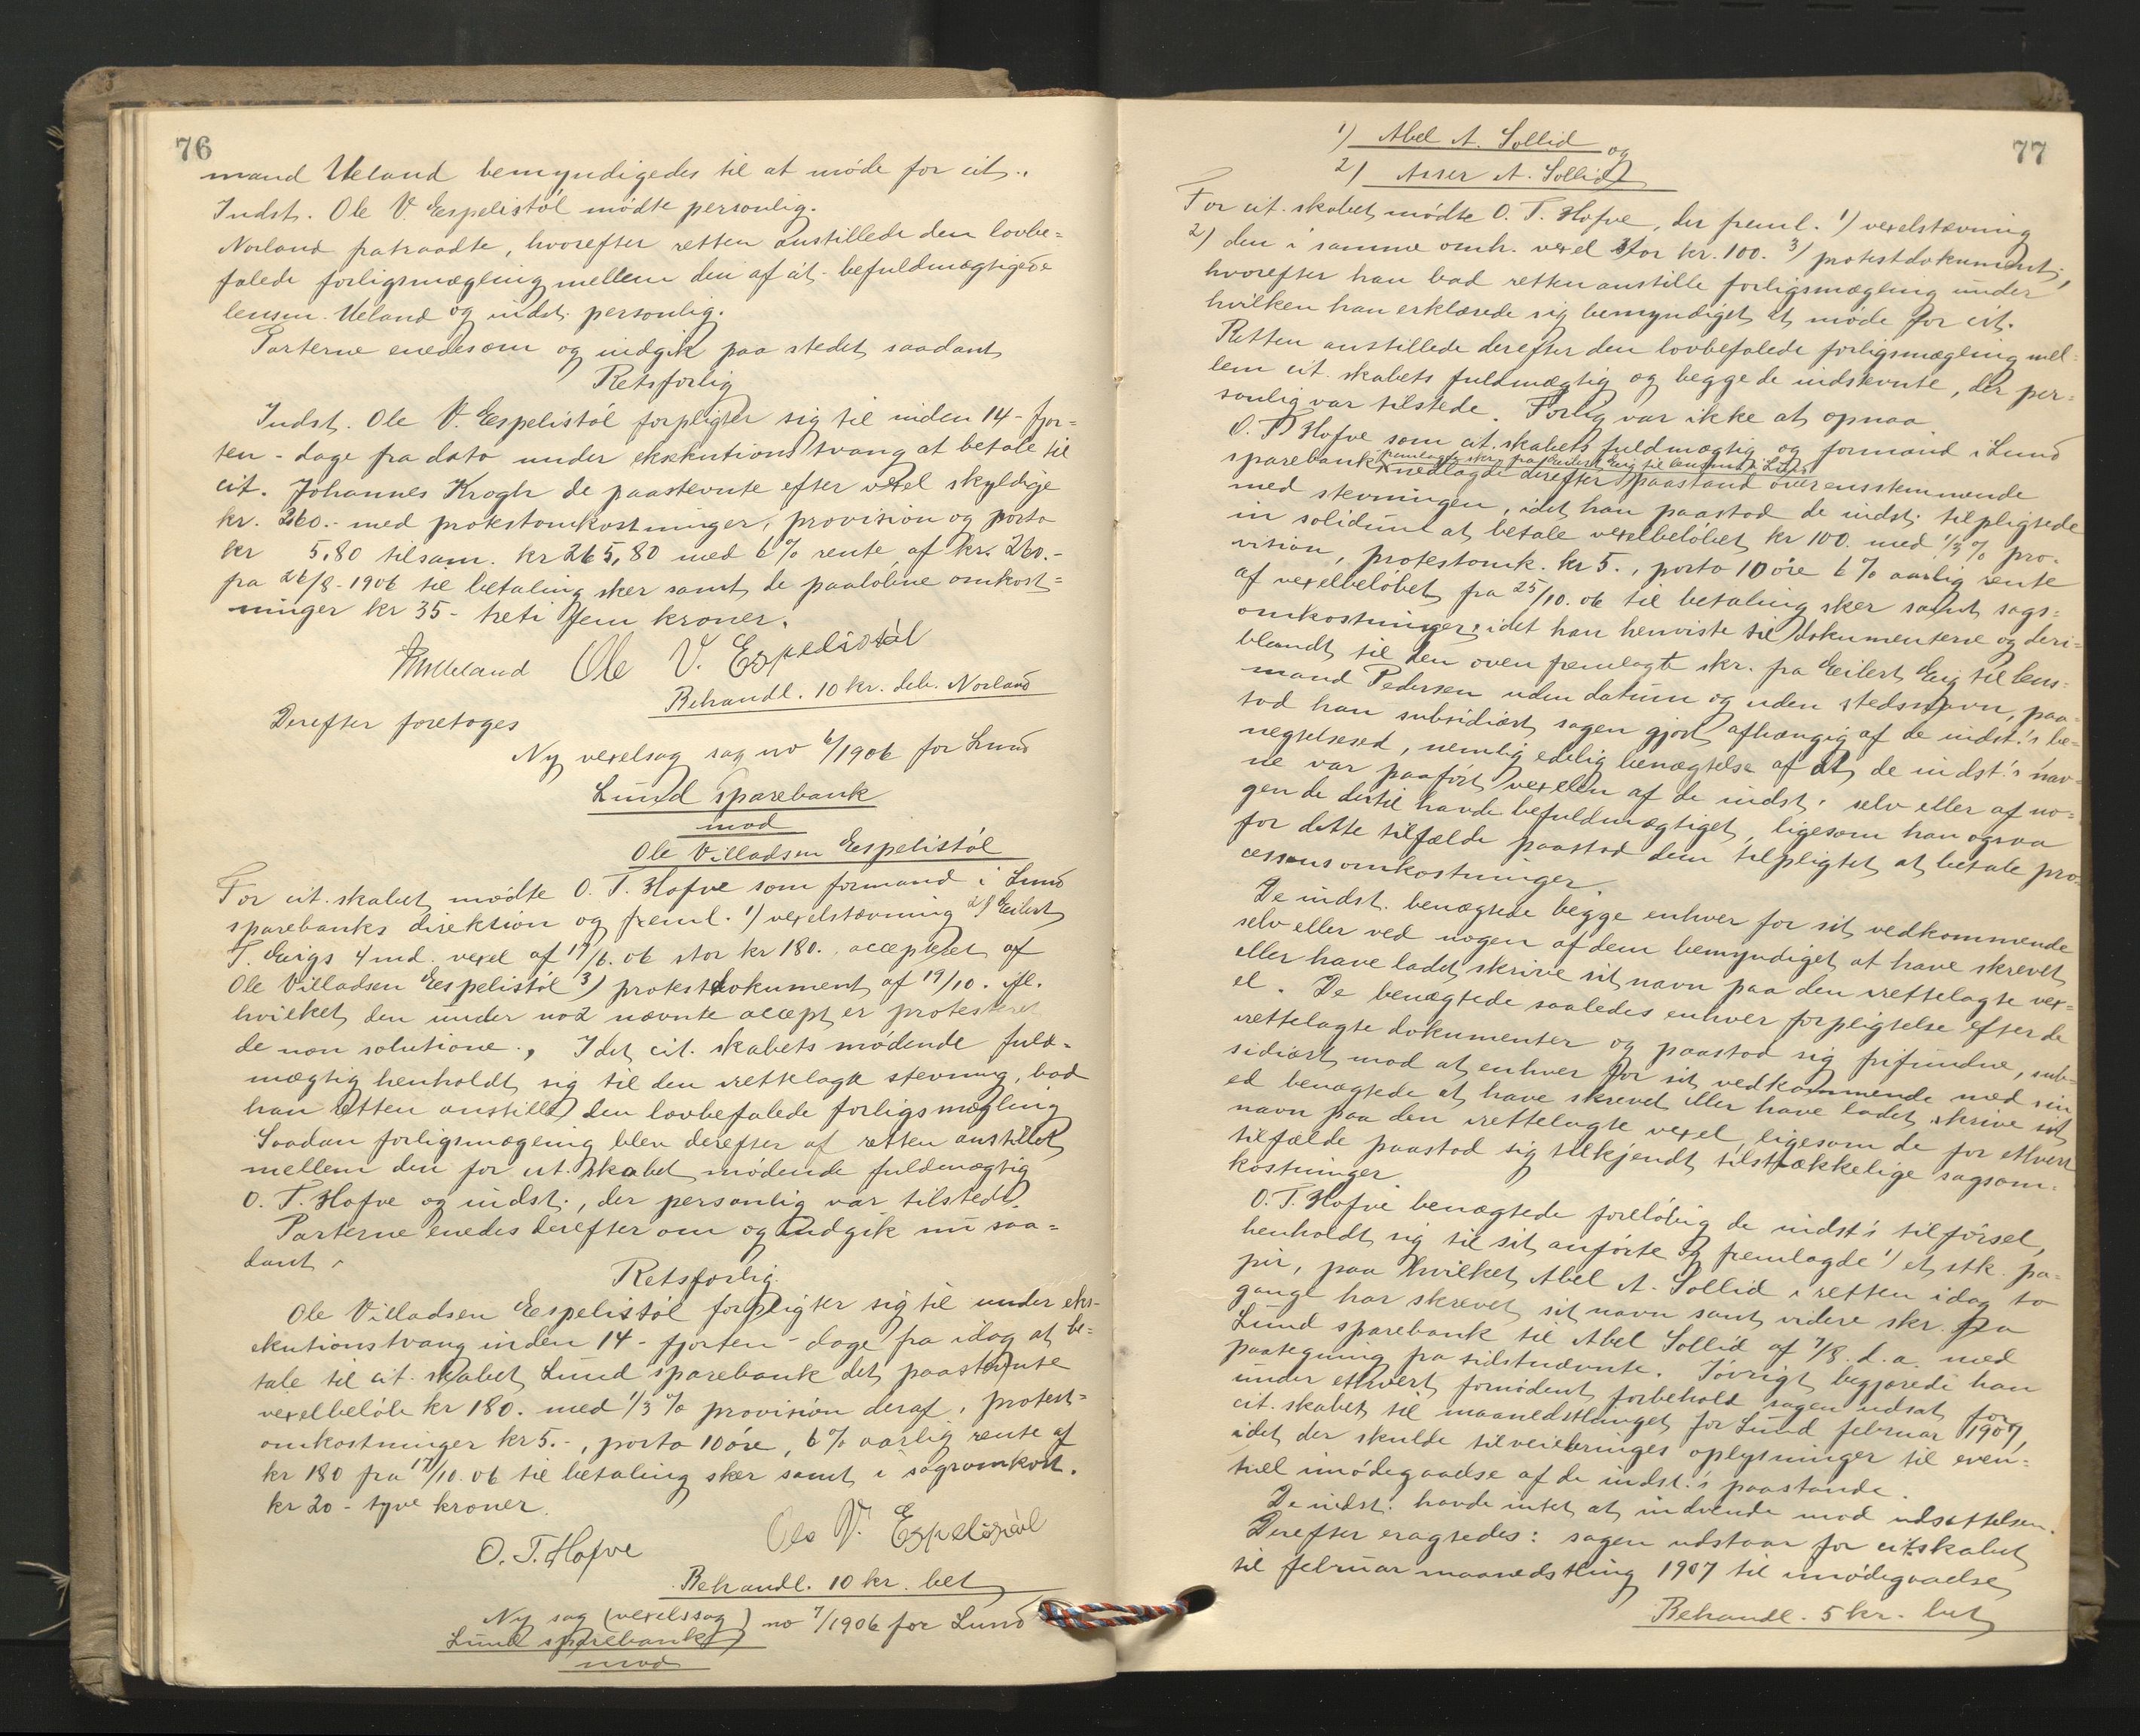 76
mand Ueland bemyndigedes til at møde for cit..
Indst. Ole V. Eespelistøl mødte personlig.
Norland fratraadte, hvorefter retten anstillede den lovbe=
falede forligsmægling mellem den af cit. befuldmægtigede
lensm. Ueland og indst. personlig.
Parterne enedesom og indgik paa stedet saadant
Retsforlig
Indst. Ole V. Eespelistøl forpligter sig til inden 14 - fjor=
ten - dage fra dato under ekskutions tvang at betale til
cit. Johannes Krogh de paastevnte efter vexel skyldige
kr. 260.- med protestomkostninger, provision og porto
kr 5,80 tilsam. kr 265,80 med 6 % rente af kr. 260.-
fra 26/8 - 1906 til betaling sker samt de paaløbne omkost=
ninger kr 35 - treti fem kroner.
Ueland Ole V. Espelistøl
Behandl. 10 kr. deb. Norland
Derefter foretoges
Ny vexelsag sag no 6/1906 for Lund
Lund sparebank
mod
Ole Villadsen Eespelistøl
For cit. skabet mødte O. T. Hofve som formand i Lund
sparebanks direktion og freml. 1) vexelstævning 2) Eilert
T. Eeigs 4 md. vexel af 17/6. 06 stor kr 180. accepteret af
Ole Villadsen Eespelistøl 3) protestdokument af 19/10. ifl.
hvilket den under no 2 nævnte accept er protesteret
de non solutione., Idet cit. skabets mødende fuld-
mægtig henholdt sig til den irettelagte stevning, bad
han retten anstille den lovbefalede forligsmægling
Saadan forligsmægling blev derefter af retten anstillet
mellem den for cit. skabet mødende fuldmægtig
O. T. Hofve og indst., der personlig var tilstede.
Parterne enedes derefter om og indgik nu saa=
dant
Retsforlig.
Ole Villadsen Eespelistøl forpligter sig til under eks-
ekutionstvang inden 14 - fjorten - dage fra idag at be=
tale til cit. skabet Lund sparebank det paastevnte
vexelbeløb kr 180. med 1/3 % provision deraf, protest=
omkostninger kr 5.-, porto 10 øre, 6 % aarlig rente af
kr 180 fra 17/10. 06 til betaling sker samt i sagsomkost.
kr 20 - tyve kroner.
O. T. Hofve Ole V. Espelistøl
Behandl. 10 kr. bet
Ny sag (vexelssag) no 7/1906 for Lund
Lund sparebank
mod
77
1) Abel A. Sollid og
2) Asser A. Sollid
For cit. skabet mødte O. T. Hofve, der freml. 1) vexelstævning
2) den i samme omh. vexel stor kr. 100. 3) protestdokument,
hvorefter han bad retten anstille forligsmægling under
hvilken han erklærede sig bemyndiget at møde for cit.
Retten anstillede derefter den lovbefalede forligsmægling mel=
lem cit. skabets fuldmægtig og begge de indstevnte, der per=
sonlig var tilstede. Forlig var ikke at opnaa.
O. T. Hofve som cit. skabets fuldmægtig og formand i Lund
fremlagde skr. fra Eilert Eeig til lensmand i Lund
sparebank nedlagde derefter paastand overensstemmende
med stevningen, idet han paastod de indst. tilpligtede
in solidum at betale vexelbeløbet kr 100. med 1/3 % pro-
vision, protestomk. kr 5., porto 10 øre 6 % aarlig rente
af vexelbeløbet fra 25/10. 06 til betaling sker samt sags=
omkostninger, idet han henviste til dokumenterne og deri=
blandt til den oven fremlagte skr. fra Eeilert Eeig til lens=
mand Pedersen uden datum og uden stedsnavn, paa=
stod han subsidiært sagen gjort afhængig af de indst.'s be=
negtelsesed, nemlig edelig benægtelse af at de indst.'s nav=
ne var paaført vexelen af de indst. selv eller af no=
gen de dertil havde befuldmægtiget, ligesom han ogsaa
for dette tilfælde paastod dem tilpligtet at betale pro=
cessens omkostninger.
De indst. benægtede begge enhver for sit vedkommende
selv eller ved nogen af dem bemyndiget at have skrevet
eller have ladet skrive sit navn paa den irettelagte vex=
el. De benægtede saaledes enhver forpligtelse efter de
irettelagte dokumenter og paastod sig frifundne, sub=
sidiært mod at enhver for sit vedkommende med sin
ed benægtede at have skrevet eller have ladet skrive sit
navn paa den irettelagte vexel, ligesom de for ethvert
tilfælde paastod sig tilkjendt tilstrækkelige sagsom=
kostninger.
O. T. Hofve benægtede foreløbig de indst's tilførsel,
henholdt sig til sit anførte og fremlagde 1) et stk. pa=
pir, paa hvilket Abel A. Sollid i retten idag to
gange har skrevet sit navn samt videre skr. fra
Lund sparebank til Abel Sollid af 7/8. d. a. med
paategning fra sidstnævnte. Iøvrigt begjærede han
under ethvert fornødent forbehold sagen udsat for
cit. skabet til maanedsthinget for Lund februar 1907,
idet der skulde tilveiebringes oplysninger til even=
tuel imødegaaelse af de indst.'s paastande.
De indst. havde intet at indvende mod udsættelsen.
Derefter eragtedes: sagen udstaar for cit. skabet
til februar maanedsthing 1907 til imødegaaelse
Behandl. 5 kr. bet